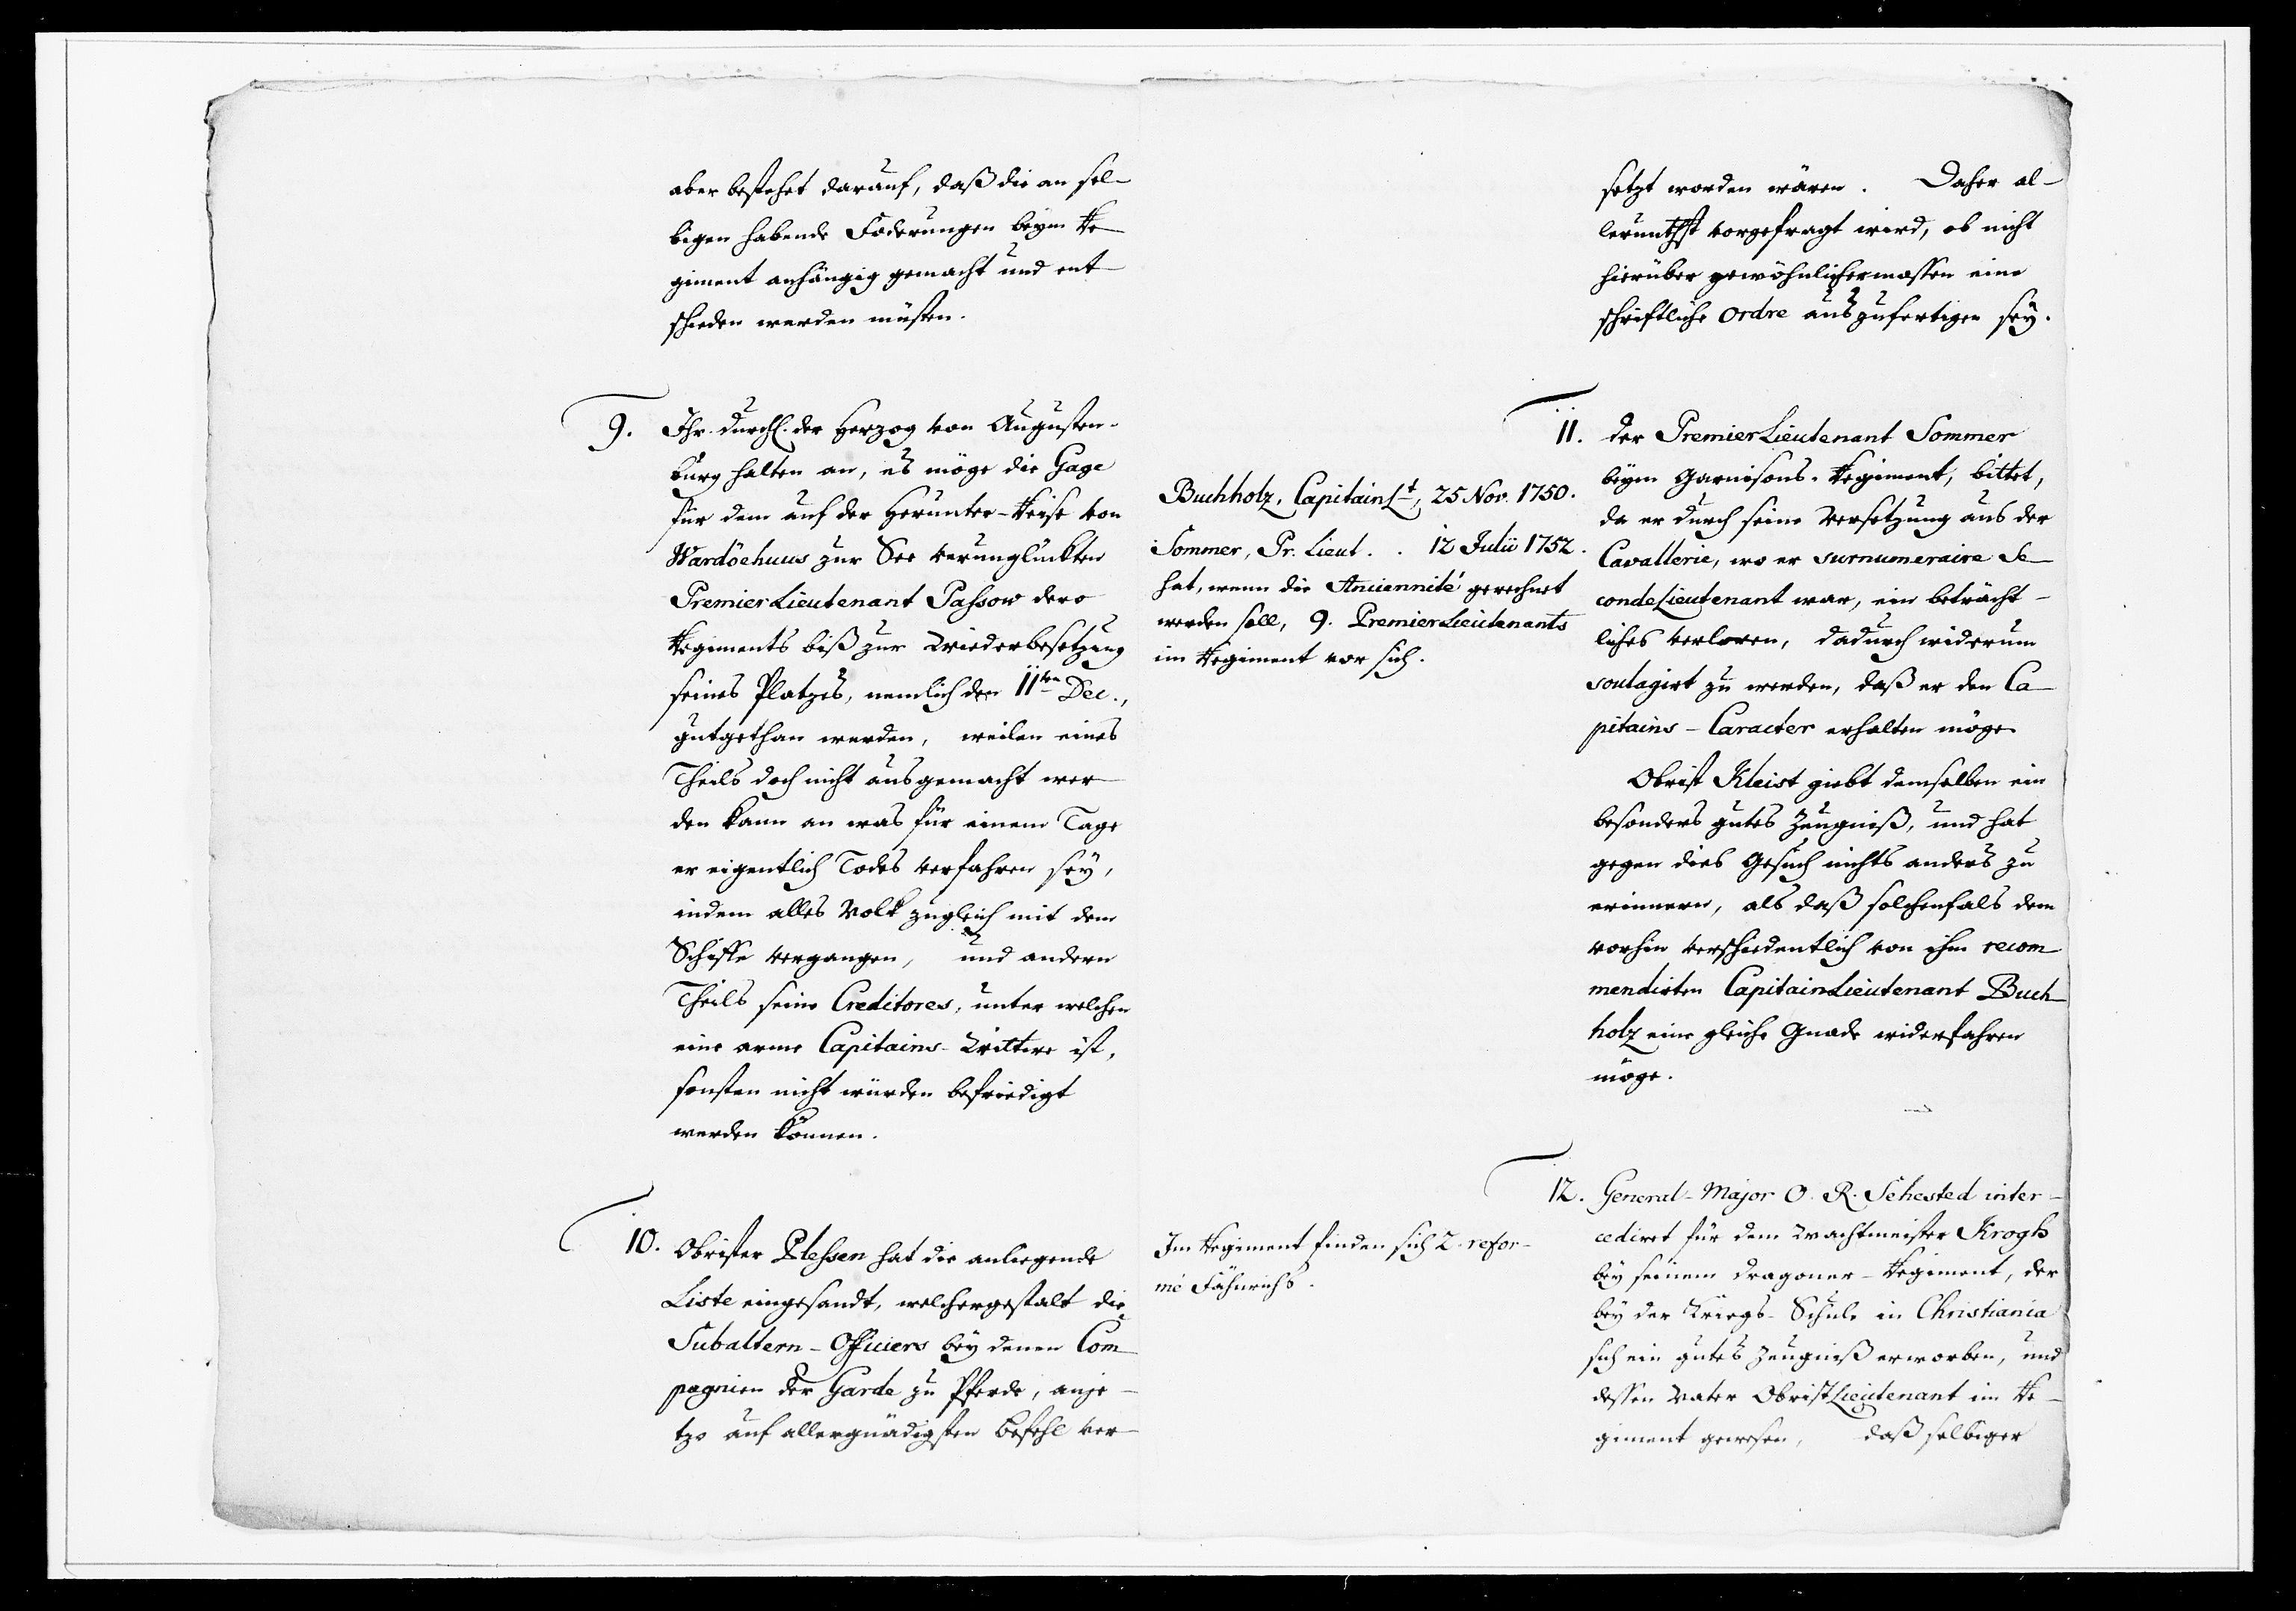 aber bestehet darauf, daß die an sel-
bigen habende Foderungen beym Re-
giment anhängig gemacht und ent-
schieden werden müsten.
9. Ihr. Durchl. der Herzog von Augusten-
burg halten an, es möge die Gage
für dem auf der Herunter-Reise von
Wardöehuus zur See verunglückten
PremierLieutenant Passow dero
Regiments biß zur Wiederbesetzung
seines Platzes, nemlich den 11ten Dec.,
gutgethan werden, weilen eines
Theils doch nicht ausgemacht wer-
den kann an was für einem Tage
er eigentlich Todes verfahren sey,
indem alles Volk zugleich mit dem
Schiffe vergangen, und andern
Theils seine Creditores, unter welchen
eine arme Capitains-Wittwe ist,
sonsten nicht würden befriedigt
werden können.
10. Obrister Plessen hat die anliegende
Liste eingesandt, welchergestalt die
Subaltern-Officiers bey denen Com-
pagnien der Garde zu Pferde, anje-
tzo auf allergnädigsten Befehl ver-
setzt worden wären. Daher al-
lerunthst vorgefragt wird, ob nicht
hierüber gewöhnlichermassen eine
schriftliche Ordre auszufertigen sey.
Buchholz, Capitain Lt, 25 Nov. 1750.
Sommer, Pr. Lieut. . 12 Julii 1752.
hat, wenn die Anciennité gerechnet
werden soll, 9. PremierLieutenants
im Regiment vor sich.
11. Der PremierLieutenant Sommer
beym Garnisons-Regiment, bittet,
da er durch seine Versetzung aus der
Cavallerie, wo er surnumeraire Se-
condeLieutenant war, ein beträcht-
liches verloren, dadurch widerum
soulagirt zu werden, daß er den Ca-
pitains-Caracter erhalten möge
Obrist Kleist giebt demselben ein
besonders gutes Zeugniß, und hat
gegen dies Gesuch nichts anders zu
erinnern, als daß solchenfals dem
vorhin verschiedentlich von ihm recom-
mendirten CapitainLieutenant Buch-
holz eine gleiche Gnade widerfahren
möge.
Im Regiment finden sich 2. refor-
mé Fähnrichs.
12. General-Major O. R. Sehested inter-
cediret für dem Wachtmeister Krogh
bey seinem Dragoner-Regiment, der
bey der Kriegs-Schule in Christiania
sich ein gutes Zeugniß erworben, und
dessen Vater ObristLieutenant im Re-
giment gewesen, daß selbiger